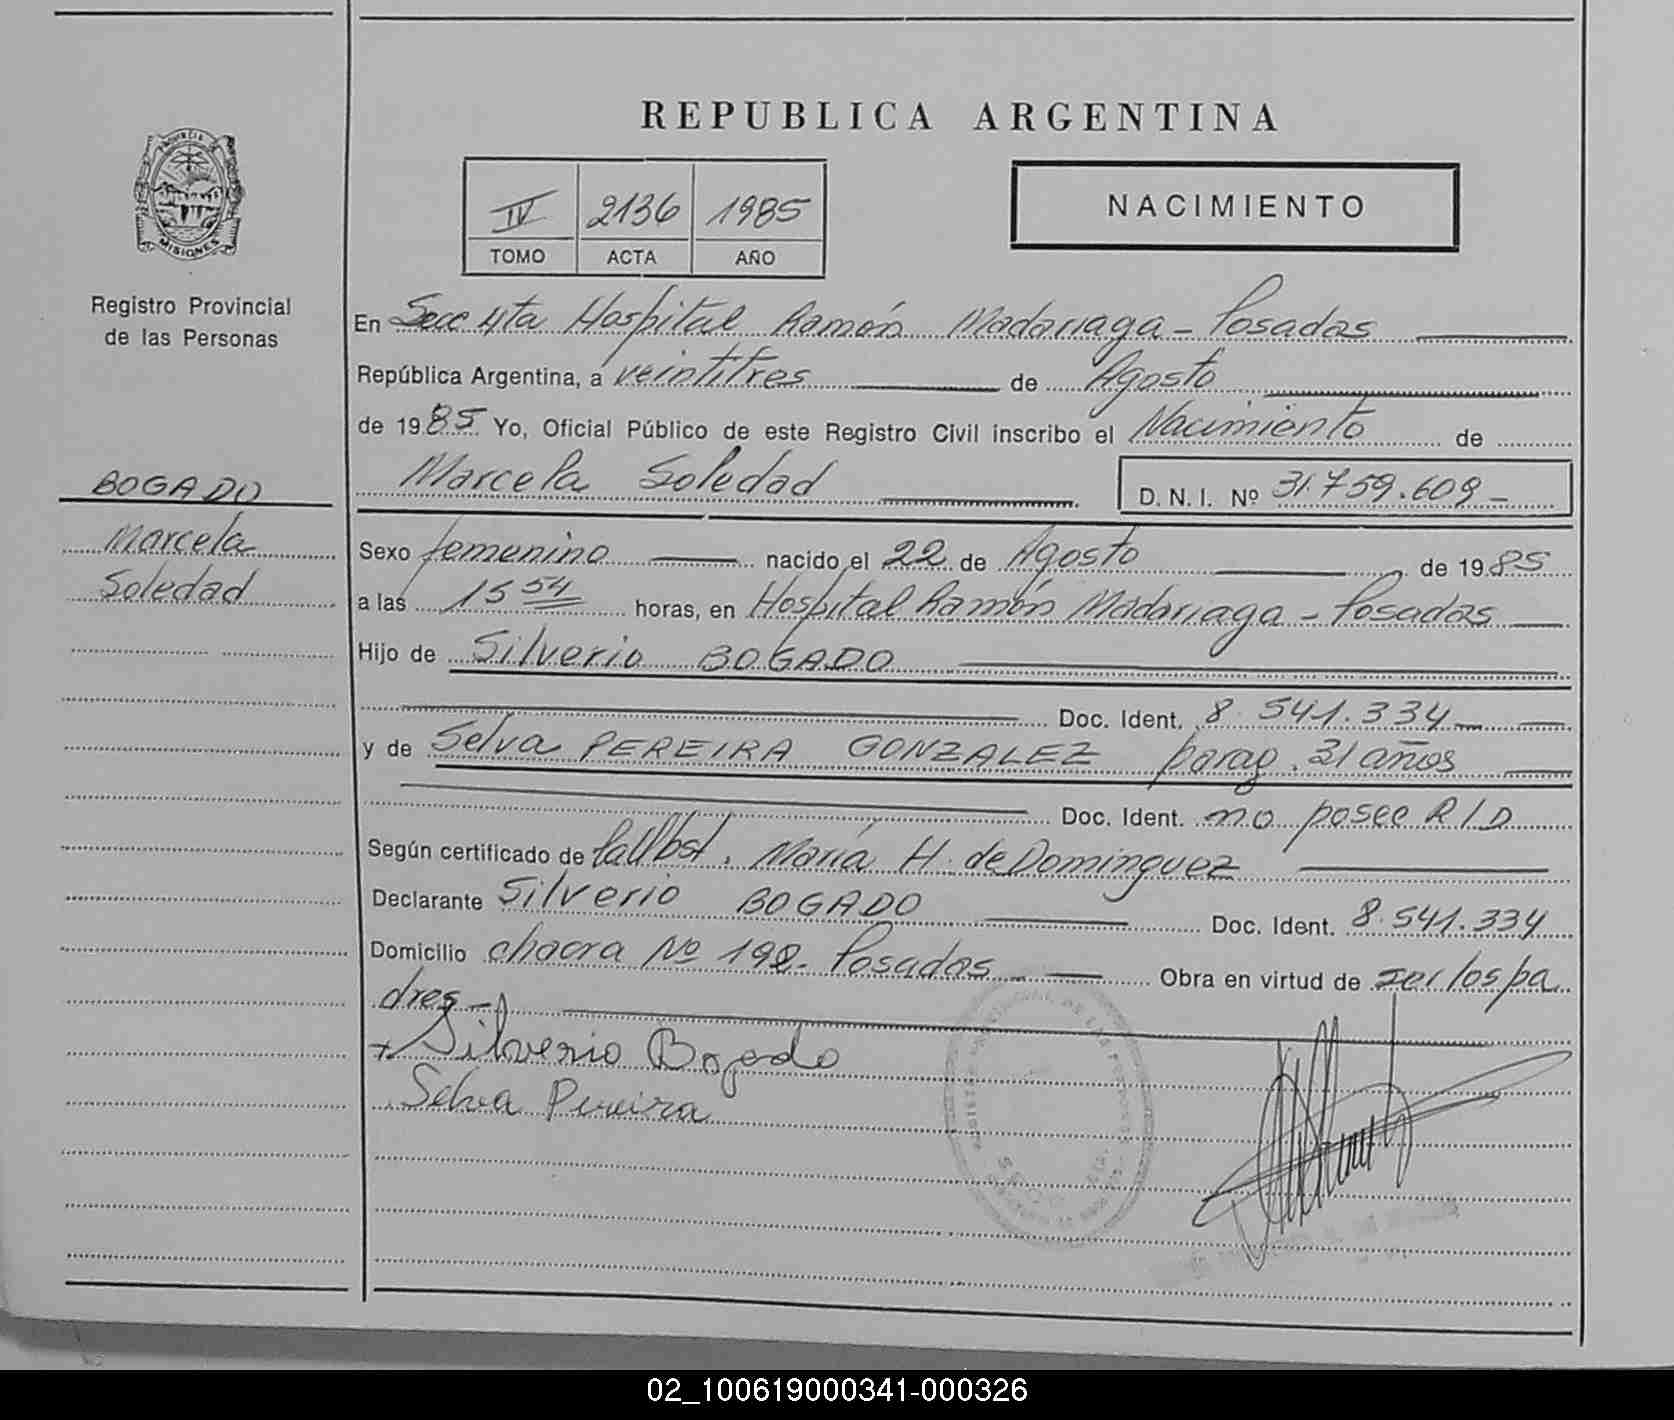 REPUBLICA ARGENTINA
PROVINCIA DE
MISIONES
Registro Provincial
de las Personas
IV 2136 1985
TOMO ACTA AÑO
NACIMIENTO
En Secc 4ta Hospital Ramón Madariaga - Posadas
República Argentina, a veintitres de Agosto
de 1985 Yo, Oficial Público de este Registro Civil inscribo el Nacimiento de
Marcela Soledad D. N. I. Nº 31.759.609 -
BOGADO
Marcela
Soledad
Sexo femenino nacido el 22 de Agosto de 1985
a las 15 54 horas, en Hospital Ramón Madariaga - Posadas
Hijo de Silverio BOGADO
Doc. Ident. 8.541.334
y de Selva PEREIRA GONZALEZ parag. 31 años
Doc. Ident. no posee R/D
Según certificado de María H. de Dominguez
Declarante Silverio BOGADO Doc. Ident. 8.541.334
Domicilio chacra Nº 198 - Posadas Obra en virtud de ser los pa
dres -
Silverio Bogado
Selva Pereira
02_100619000341-000326